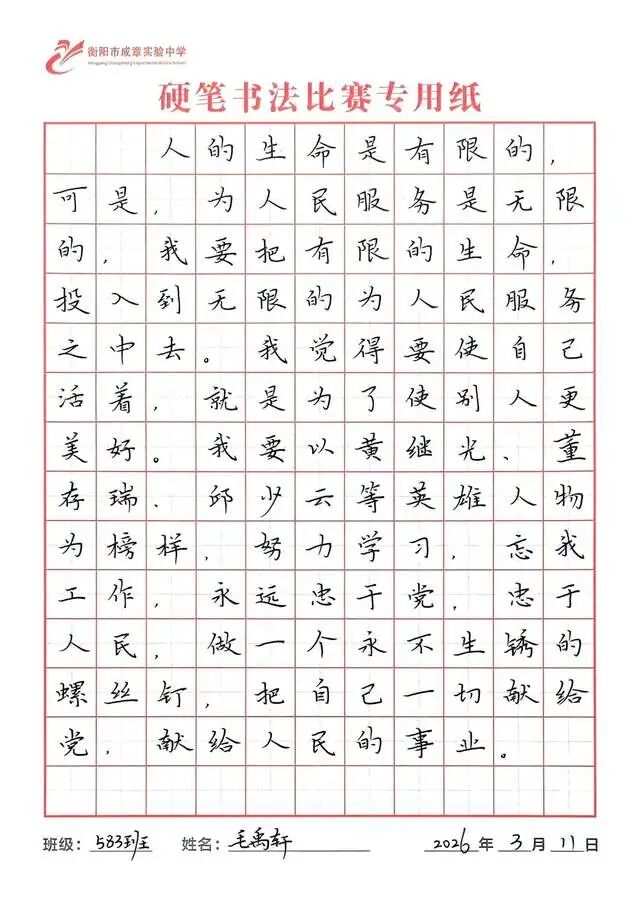 衡阳市成章实验中学
硬笔书法比赛专用纸
人的生命是有限的，
可是，为人民服务是无限
的，我要把有限的生命，
投入到无限的为人民服务
之中去。我觉得要使自己
活着，就是为了使别人更
美好。我要以黄继光、董
存瑞、邱少云等英雄人物
为榜样，努力学习，忘我
工作，永远忠于党，忠于
人民，做一个永不生锈的
螺丝钉，把自己一切献给
党，献给人民的事业。
班级：583班 姓名：毛禹轩 2026年3月11日